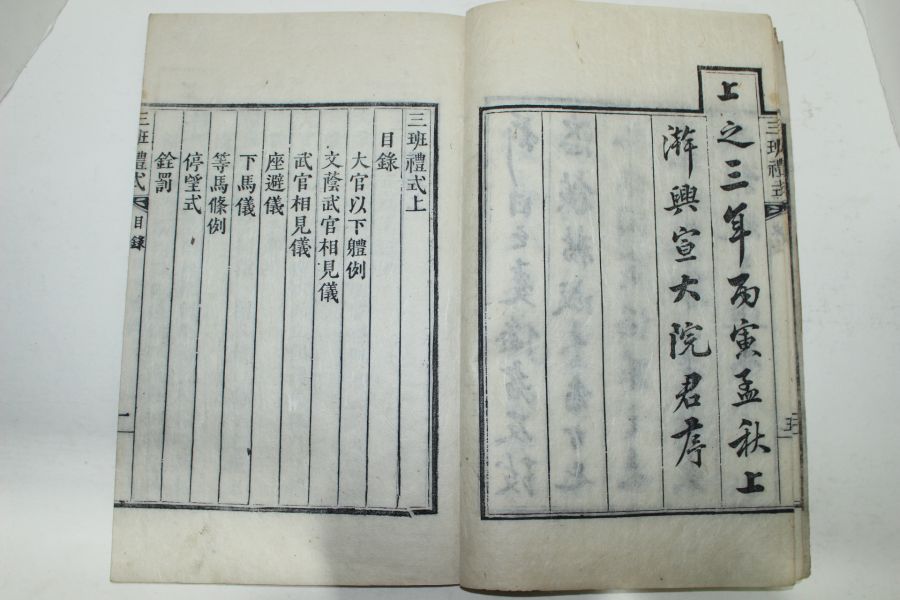 上之三年丙寅孟秋上
澣興宣大院君序
三班禮式
五
三班禮式上
目錄
大官以下軆例
文蔭武官相見儀
武官相見儀
座避儀
下馬儀
等馬條例
停望式
銓罰
三班禮式
目錄
一